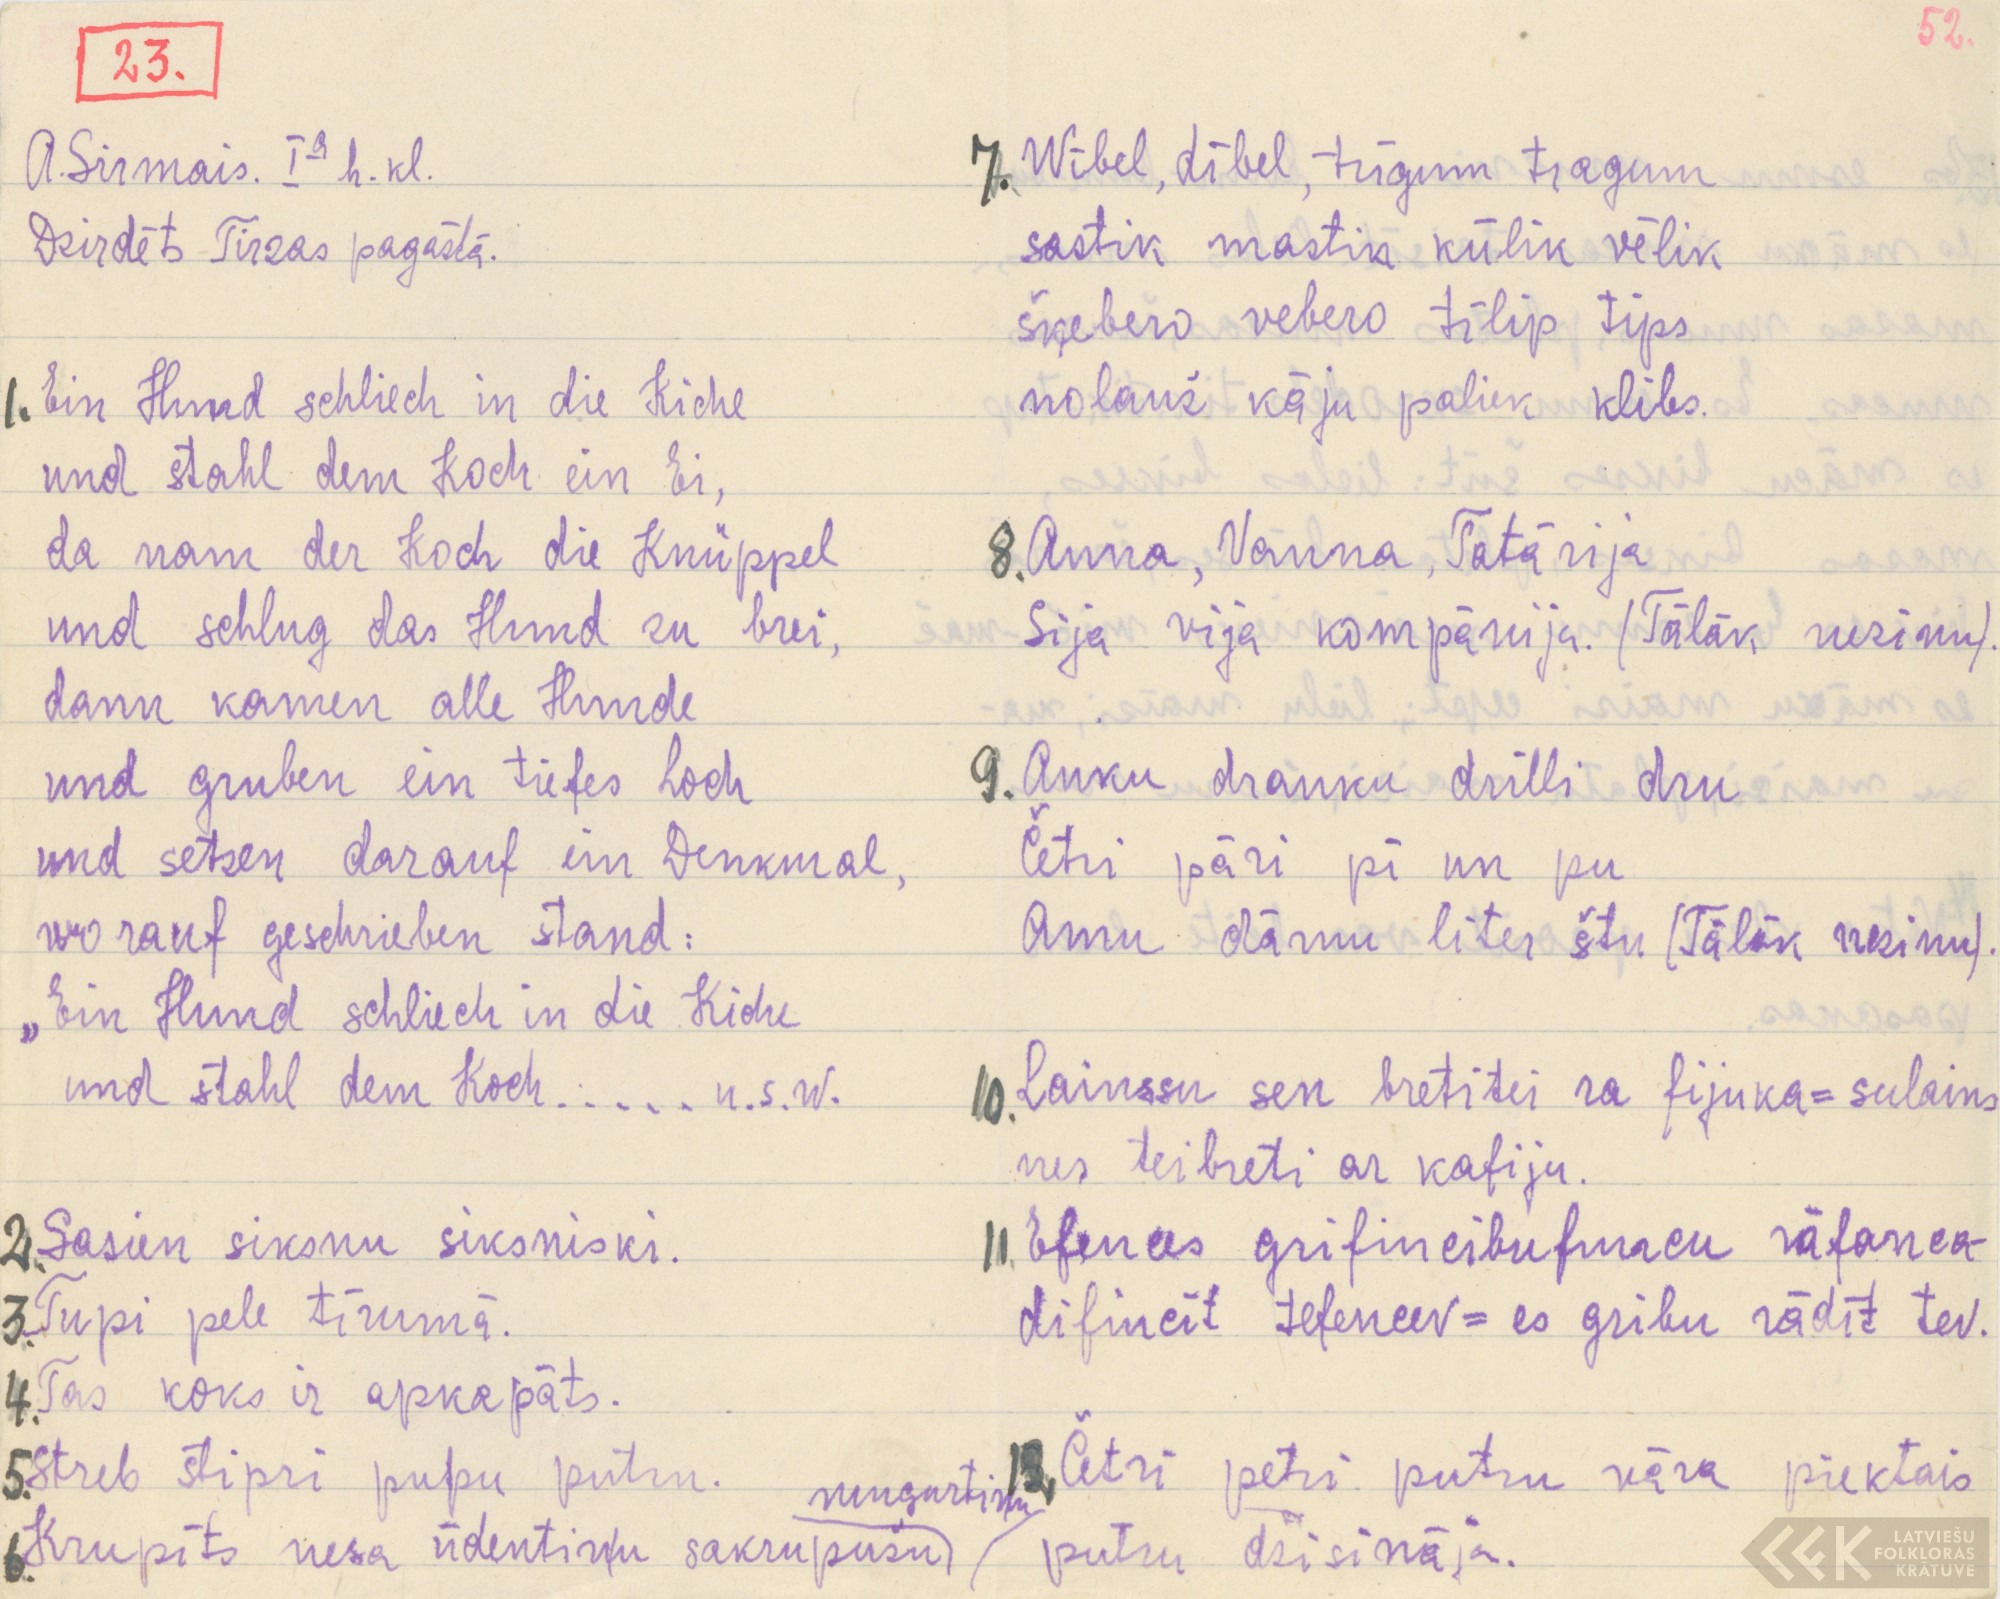 23.
52.
A. Sirmais. Iª h. kl.
Dzirdēts Tirzas pagastā.
1. Ein Hund schliech in die Kiche
und stahl dem Koch ein Ei,
da nam der Koch die Knüppel
und schlug das Hund zu brei,
dann kamen alle Hunde
und gruben ein tiefes Loch
und setzen darauf ein Denkmal,
worauf geschrieben stand:
„Ein Hund schliech in die Kiche
und stahl dem Koch...... u.s.w.
2. Sasien siksnu siksniski.
3. Tupi pele tīrumā.
4. Tas koks ir apkapāts.
5. Streb stipri pupu putru.
6. Krupīts nesa ūdentiņu sakrupušu
muguriņu
7. Wībel, dībel, trīgum tragum
sastik mastik kūlik vēlik
šķebero vebero tīlip tips
nolauž kāju paliek klibs.
8. Anna, Vanna, Tatārija
Sija vija kompānija. (Tālāk nezinu).
9. Anku dranku drilli dru
Četri pāri pī un pu
Amu dāmu liter štu (Tālāk nezinu).
10. Lainssu sen bretitei ra fijuka = sulains
nes teibreti ar kafiju.
11. Efences grifincibufuncu rāfanca-
difincīt tefencev = es gribu rādīt tev.
12. Četri petri putru vāra piektais
putru dzisināja.
LATVIEŠU
FOLKLORAS
KRĀTUVE